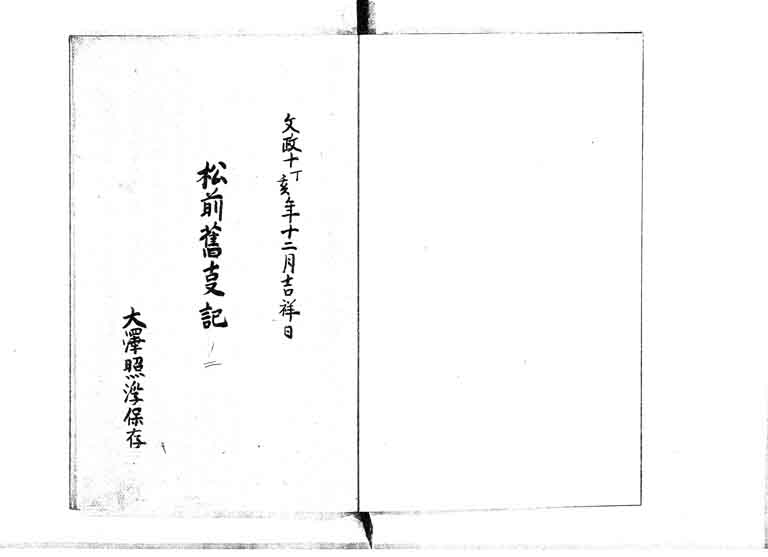 文政十丁亥年十二月吉祥日
松前舊事記
大澤照淳保存